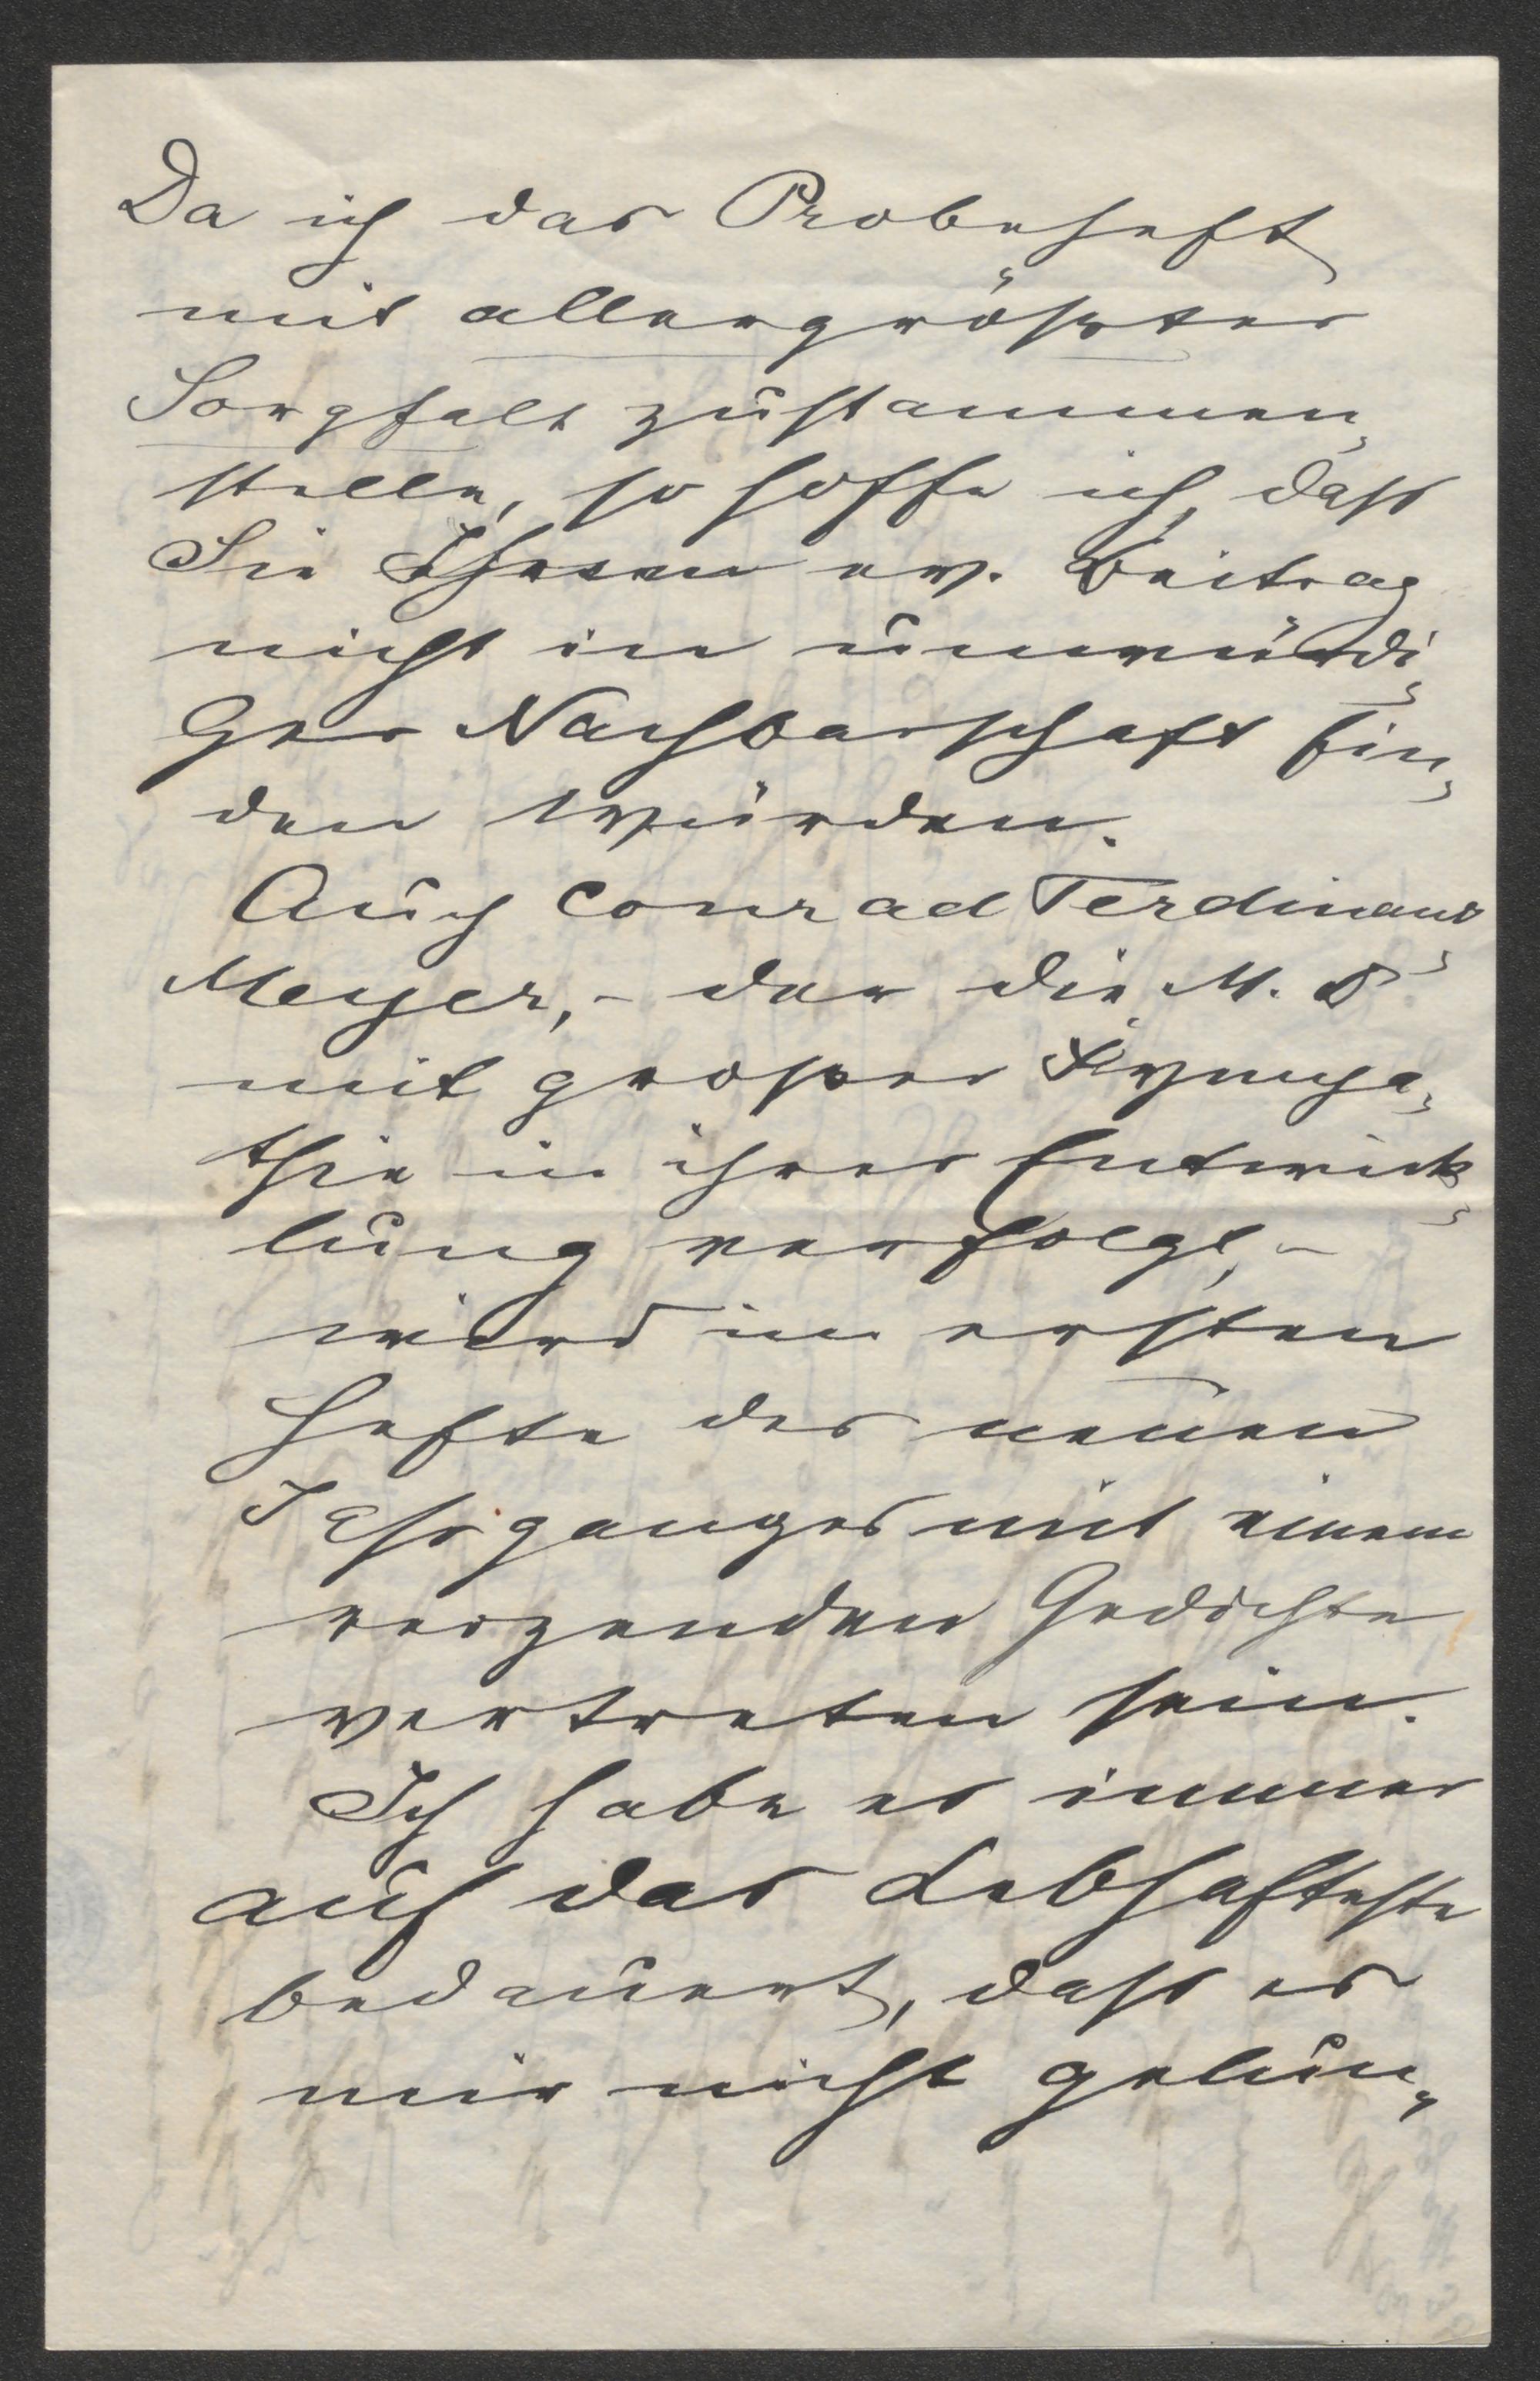 Da ich das Probeheft
mit allergrößter
Sorgfalt zusammen¬
stelle, so hoffe ich, dass
Sie Ihren ev. Beitrag
nicht in unwürdi¬
ger Nachbarschaft fin¬
den würden.
Auch Conrad Ferdinand
Meyer, – der die M. D.
mit großer Sympa¬
thie in ihrer Entwick¬
lung verfolgt, –
wird im ersten
Hefte des neuen
Jahrganges mit einem
reizenden Gedichte
vertreten sein.
Ich habe es immer
auf das Lebhafteste
bedauert, dass es
mir nicht gelun¬